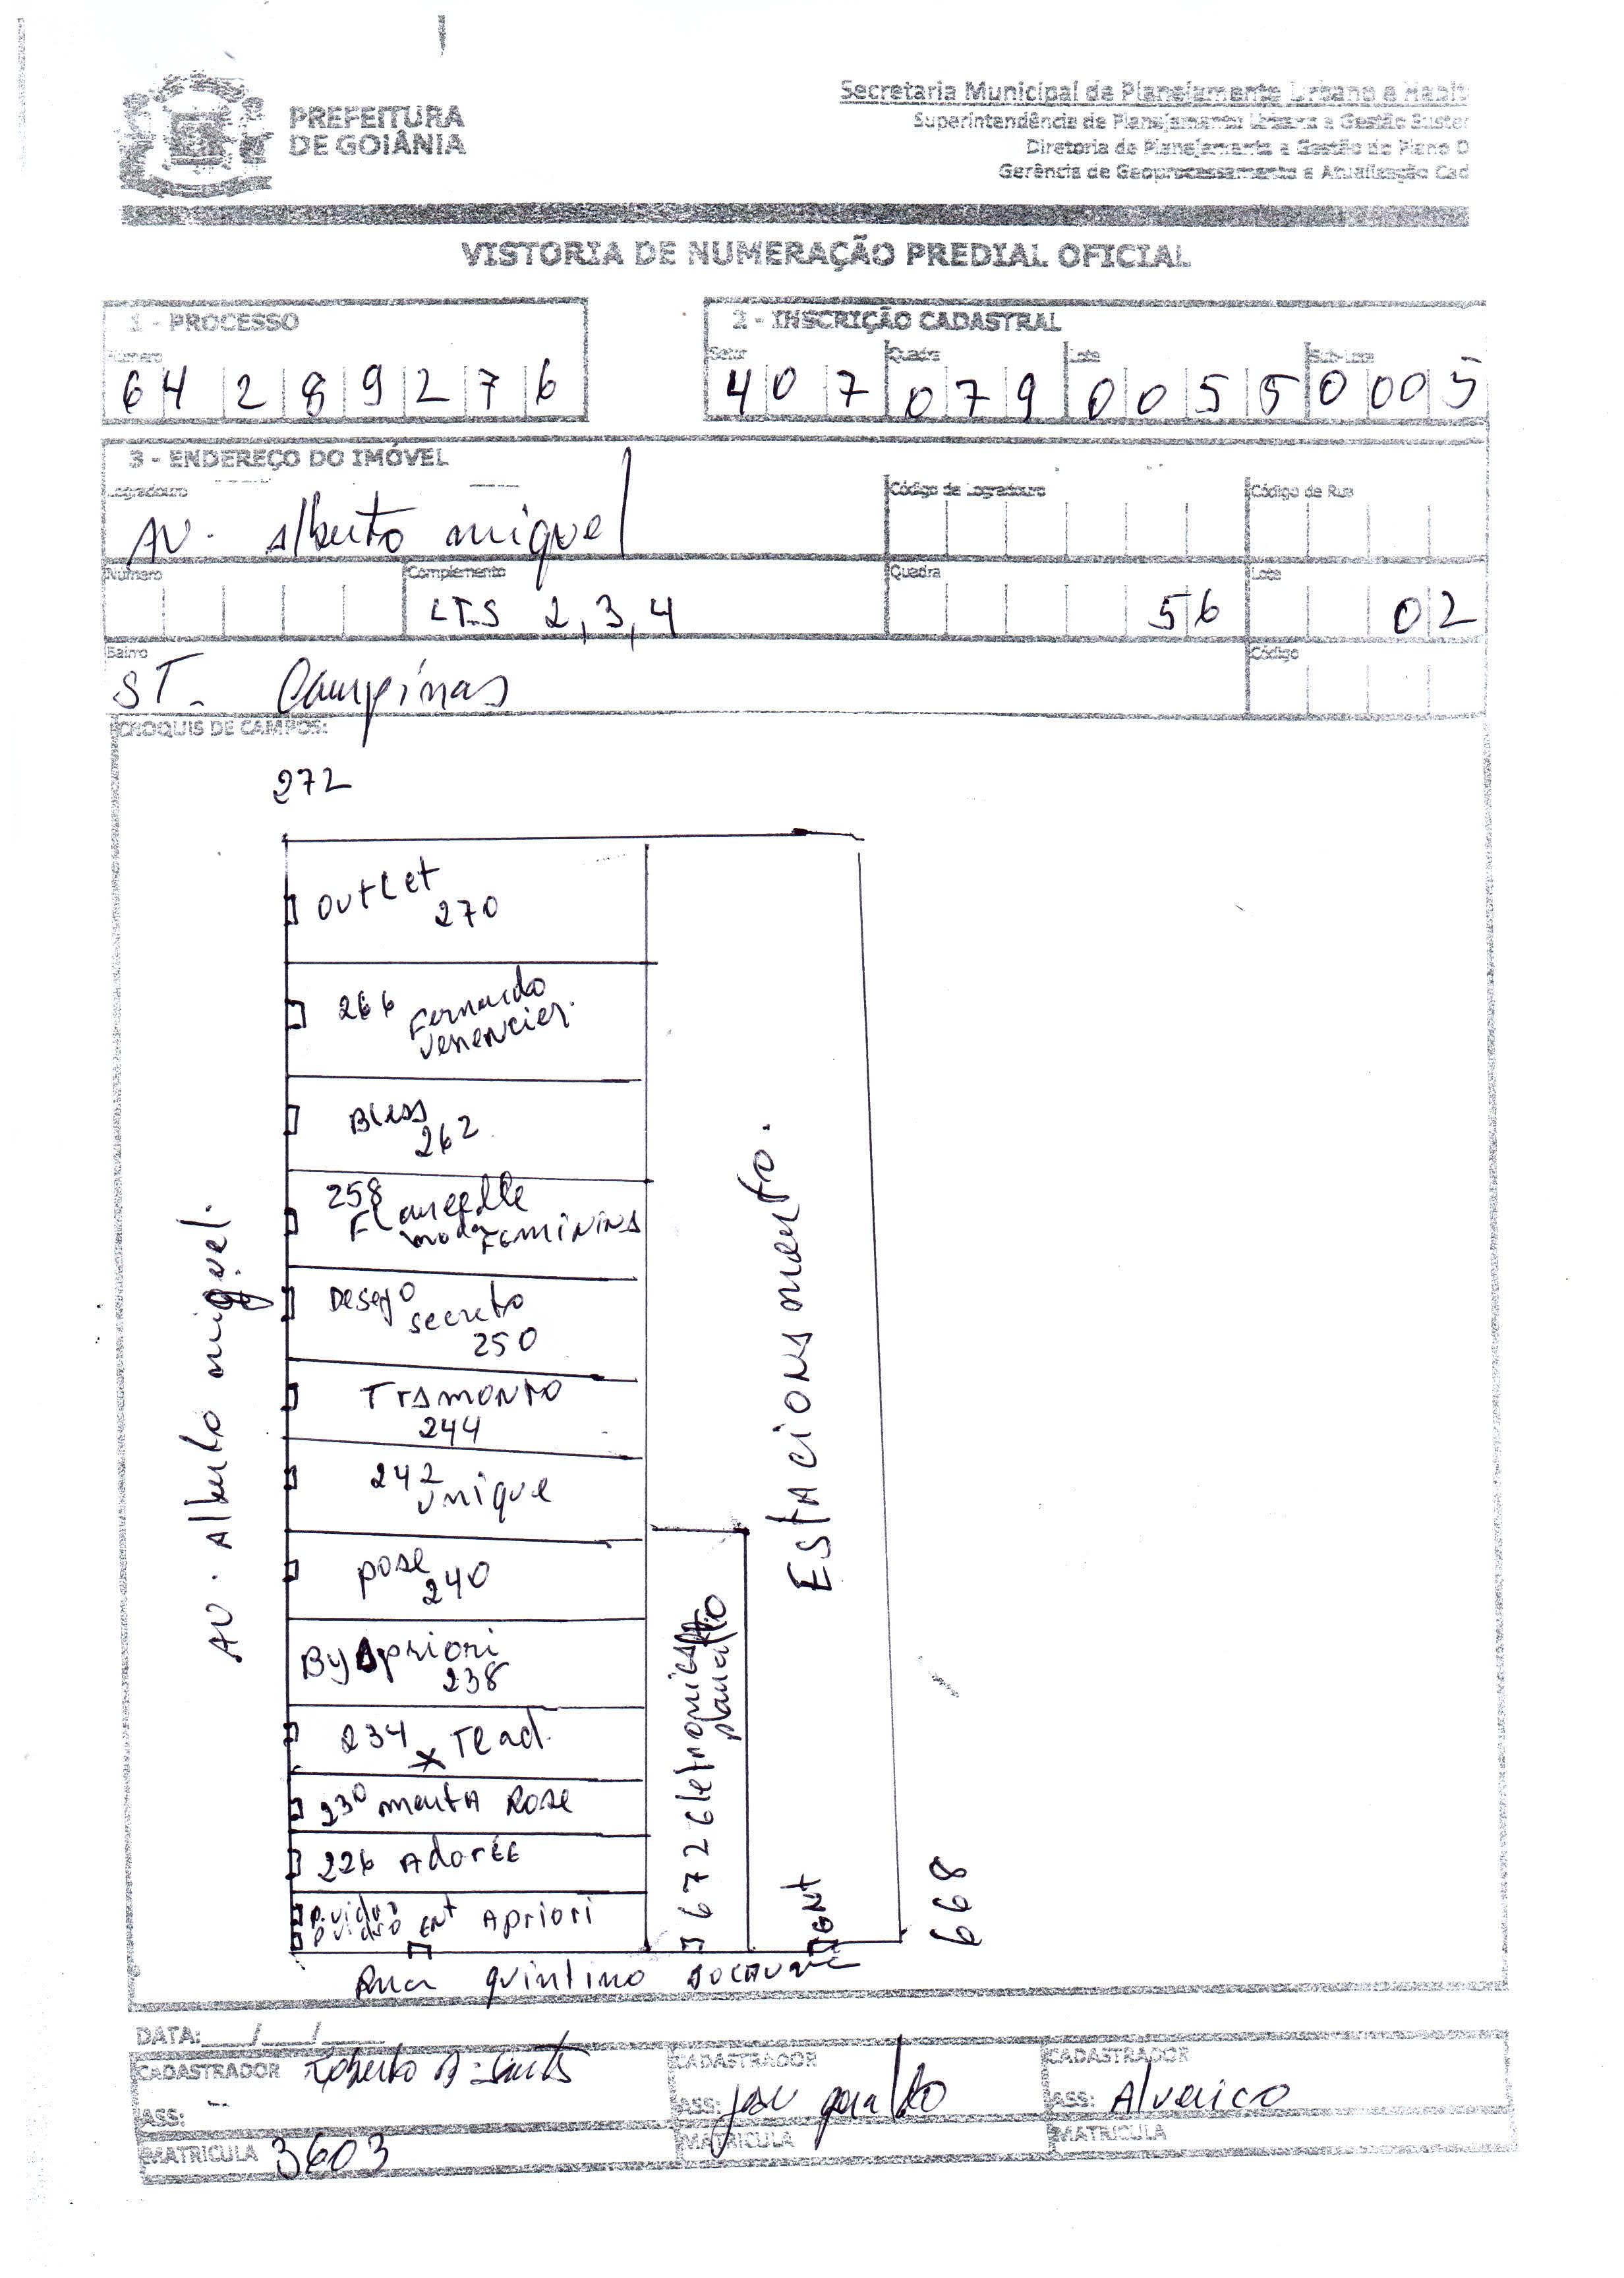 PREFEITURA
DE GOIÂNIA
Secretaria Municipal de Planejamento Urbano e Habit
Superintendência de Planejamento Urbano e Gestão Susten
Diretoria de Planejamento e Gestão do Plano D
Gerência de Geoprocessamento e Atualização Cad
VISTORIA DE NUMERAÇÃO PREDIAL OFICIAL
1 - PROCESSO
Número
64289276
2 - INSCRIÇÃO CADASTRAL
Setor Quadra Lote Sub-Lote
407 079 0055 0005
3 - ENDEREÇO DO IMÓVEL
Logradouro Código de Logradouro Código de Rua
AV. Alberto miguel
Número Complemento Quadra Lote
LTS 2,3,4 56 02
Bairro Código
ST. Campinas
CROQUIS DE CAMPOS:
272
OUTLET
270
266 Fernando
Bless
262
258
moda FEMININA
Desejo
secreto
250
Tramonto
244
242
Unique
pose
240
By Apriori
238
234 Tead.
X
230 menta Rose
226 Adorée
ENT Apriori
AV. Alberto miguel.
672 eletronica
planalto
Estacionamento.
ENT
668
Rua quintino bocaiuva
DATA: __/__/__
CADASTRADOR Roberto A. Santos
ASS:
MATRICULA 3603
CADASTRADOR
ASS: José geraldo
MATRICULA
CADASTRADOR
ASS: Alverico
MATRICULA